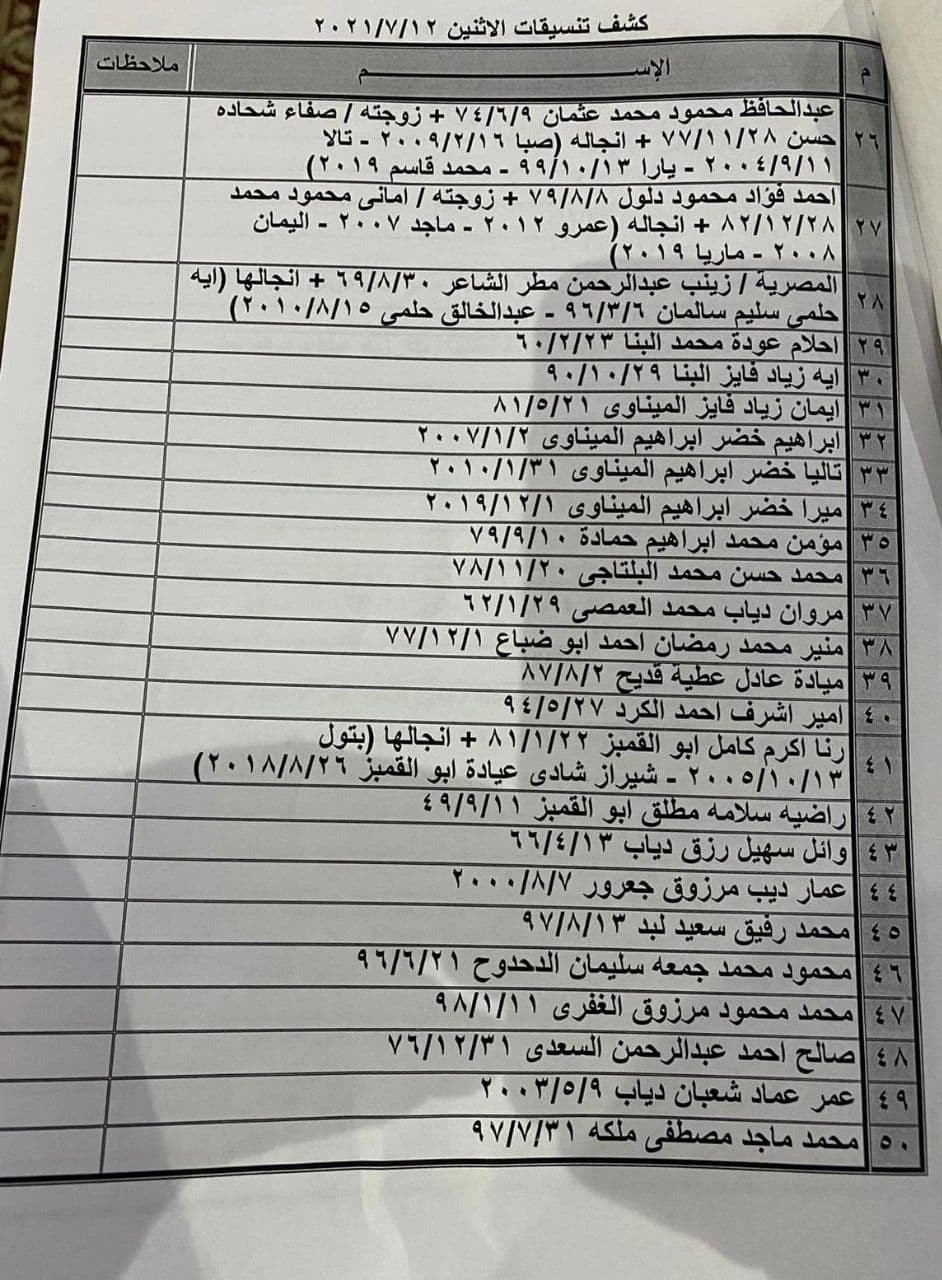 كشف تنسيقات الاثنين ٢٠٢١/٧/١٢
م الإســـــــــم ملاحظات
٢٦ عبدالحافظ محمود محمد عثمان ٧٤/٦/٩ + زوجته / صفاء شحاده
حسن ٧٧/١١/٢٨ + انجاله (صبا ٢٠٠٩/٢/١٦ - تالا
٢٠٠٤/٩/١١ - يارا ٩٩/١٠/١٣ - محمد قاسم ٢٠١٩)
٢٧ احمد فؤاد محمود دلول ٧٩/٨/٨ + زوجته / امانى محمود محمد
٨٢/١٢/٢٨ + انجاله (عمرو ٢٠١٢ - ماجد ٢٠٠٧ - اليمان
٢٠٠٨ - ماريا ٢٠١٩)
٢٨ المصرية / زينب عبدالرحمن مطر الشاعر ٦٩/٨/٣٠ + انجالها (ايه
حلمى سليم سالمان ٩٦/٣/٦ - عبدالخالق حلمى ٢٠١٠/٨/١٥)
٢٩ احلام عودة محمد البنا ٦٠/٢/٢٣
٣٠ ايه زياد فايز البنا ٩٠/١٠/٢٩
٣١ ايمان زياد فايز الميناوى ٨١/٥/٢١
٣٢ ابراهيم خضر ابراهيم الميناوى ٢٠٠٧/١/٢
٣٣ تاليا خضر ابراهيم الميناوى ٢٠١٠/١/٣١
٣٤ ميرا خضر ابراهيم الميناوى ٢٠١٩/١٢/١
٣٥ مؤمن محمد ابراهيم حمادة ٧٩/٩/١٠
٣٦ محمد حسن محمد البلتاجى ٧٨/١١/٢٠
٣٧ مروان دياب محمد العمصى ٦٢/١/٢٩
٣٨ منير محمد رمضان احمد ابو ضباع ٧٧/١٢/١
٣٩ ميادة عادل عطية قديح ٨٧/٨/٢
٤٠ امير اشرف احمد الكرد ٩٤/٥/٢٧
٤١ رنا اكرم كامل ابو القمبز ٨١/١/٢٢ + انجالها (بتول
٢٠٠٥/١٠/١٣ - شيراز شادى عيادة ابو القمبز ٢٠١٨/٨/٢٦)
٤٢ راضيه سلامه مطلق ابو القمبز ٤٩/٩/١١
٤٣ وائل سهيل رزق دياب ٦٦/٤/١٣
٤٤ عمار ديب مرزوق جعرور ٢٠٠٠/٨/٧
٤٥ محمد رفيق سعيد لبد ٩٧/٨/١٣
٤٦ محمود محمد جمعه سليمان الدحدوح ٩٦/٦/٢١
٤٧ محمد محمود مرزوق الغفرى ٩٨/١/١١
٤٨ صالح احمد عبدالرحمن السعدى ٧٦/١٢/٣١
٤٩ عمر عماد شعبان دياب ٢٠٠٣/٥/٩
٥٠ محمد ماجد مصطفى ملكه ٩٧/٧/٣١